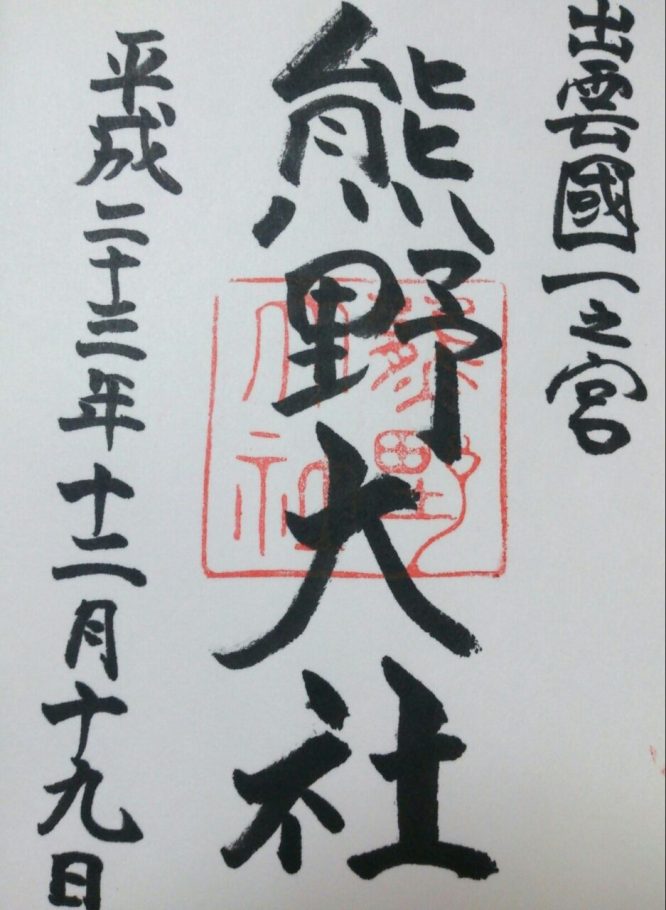 出雲國一之宮
熊野大社
熊野大社
平成二十三年十二月十九日